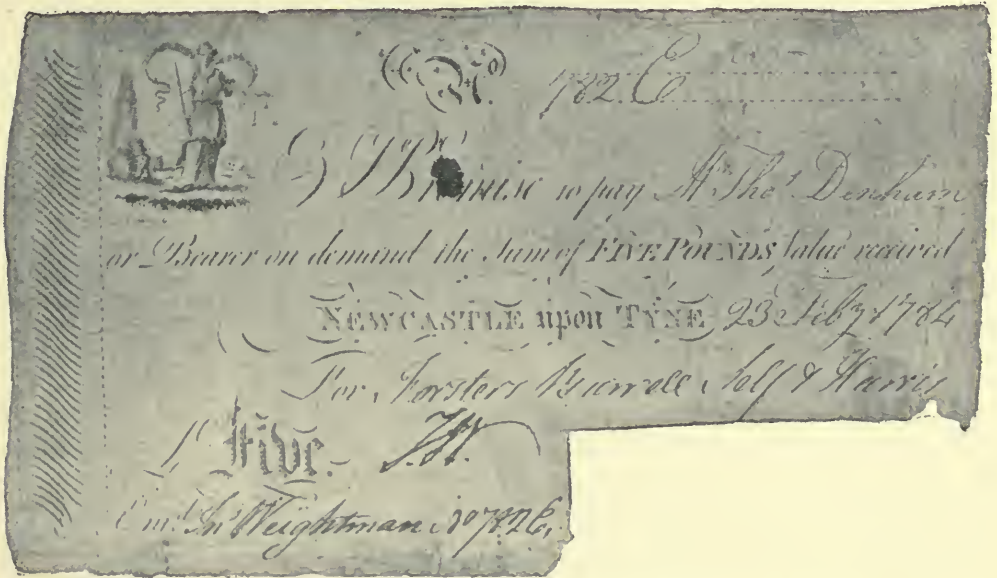 No. 782 E
I Promise to pay Mr. Thos. Denham
or Bearer on demand the Sum of FIVE POUNDS Value received
NEWCASTLE upon TYNE 23 Feby 1784
For Forsters Burrell Self & Harris
£ Five. J.H.
Entd. Jno Weightman No 782 E.